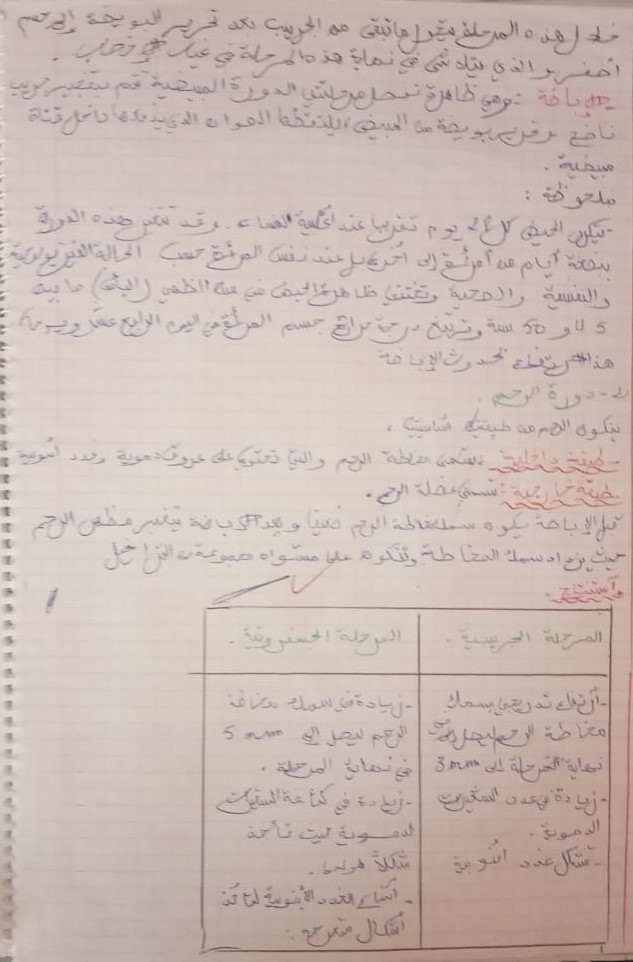 خلال هذه المرحلة يتحول ما تبقى من الجريب بعد تحرير البويضة إلى جسم
أصفر والذي يتلاشى في نهاية هذه المرحلة في غياب
الإباضة : وهي ظاهرة تفصل مرحلتي الدورة المبيضية تتم بتفجير جريب
ناضج وتحرير بويضة من المبيض، يلتقطها الصوان الذي يدخل قناة
مبيضية .
ملحوظة :
- يتكرر الحيض كل 28 يوم تقريبا عند أغلبية النساء . وقد تتغير هذه الدورة
ببضعة أيام من امرأة إلى أخرى بل عند نفس المرأة حسب الحالة الفيزيولوجية
والنفسية والصحية وتختفي ظاهرة الحيض في سن الطهي (اليأس) ما بين
45 و 50 سنة وترتفع درجة حرارة جسم المرأة في اليوم الرابع عشر و
هذا الارتفاع لحدوث الإباضة
2- دورة الرحم .
يتكون الرحم من طبقتين أساسيتين .
- طبقة داخلية : تسمى مخاطة الرحم والتي تحتوي على عروق دموية وغدد أنبوبية
- طبقة خارجية : تسمى عضلة الرحم .
قبل الإباضة يكون سمك مخاطة الرحم ضعيفا وبعد الإباضة يتغير مظهر الرحم
حيث يزداد سمك المخاطة وتتكون على مستواه مجموعة من التراخيل
استنتاج :
المرحلة الجريبية .
المرحلة الجسفرونية .
- ارتفاع تدريجي بسمك
مخاطة الرحم ليصل في
نهاية المرحلة إلى 3mm
- زيادة في عدد الشعيرات
الدموية .
- تشكل غدد أنبوبية
- زيادة في سمك مخاطة
الرحم ليصل إلى 5 mm
في نهاية المرحلة .
- زيادة في كثافة الشعيرات
الدموية حيث تأخذ
شكلا
- الغدد الأنبوبية لتأخذ
أشكال متعرجة .